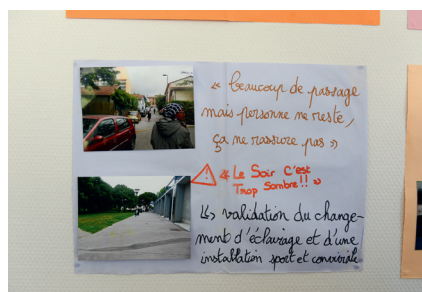 « beaucoup de passage
mais personne ne reste,
ça ne rassure pas »
« Le Soir C'est
Trop Sombre!! »
↳ validation du change-
ment d'éclairage et d'une
installation sport et conviviale